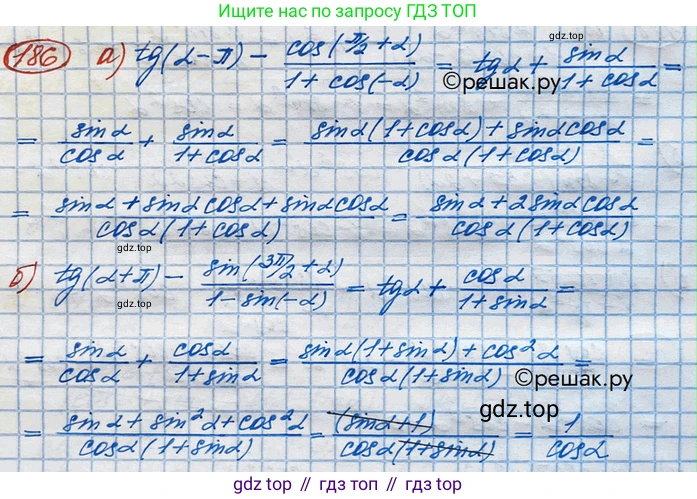 Ищите нас по запросу ГДЗ ТОП
186 а) tg(α-π) - cos(π/2+α)/(1+cos(-α)) = tgα + sinα/(1+cosα) =
©решак.ру
= sinα/cosα + sinα/(1+cosα) = (sinα(1+cosα)+sinαcosα)/(cosα(1+cosα)) =
= (sinα+sinαcosα+sinαcosα)/(cosα(1+cosα)) = (sinα+2sinαcosα)/(cosα(1+cosα))
gdz.top
gdz.top
б) tg(α+π) - sin(3π/2+α)/(1-sin(-α)) = tgα + cosα/(1+sinα) =
= sinα/cosα + cosα/(1+sinα) = (sinα(1+sinα)+cos²α)/(cosα(1+sinα)) =
©решак.ру
gdz.top
= (sinα+sin²α+cos²α)/(cosα(1+sinα)) = (sinα+1)/(cosα(1+sinα)) = 1/cosα
gdz top \ гдз топ \ gdz.top